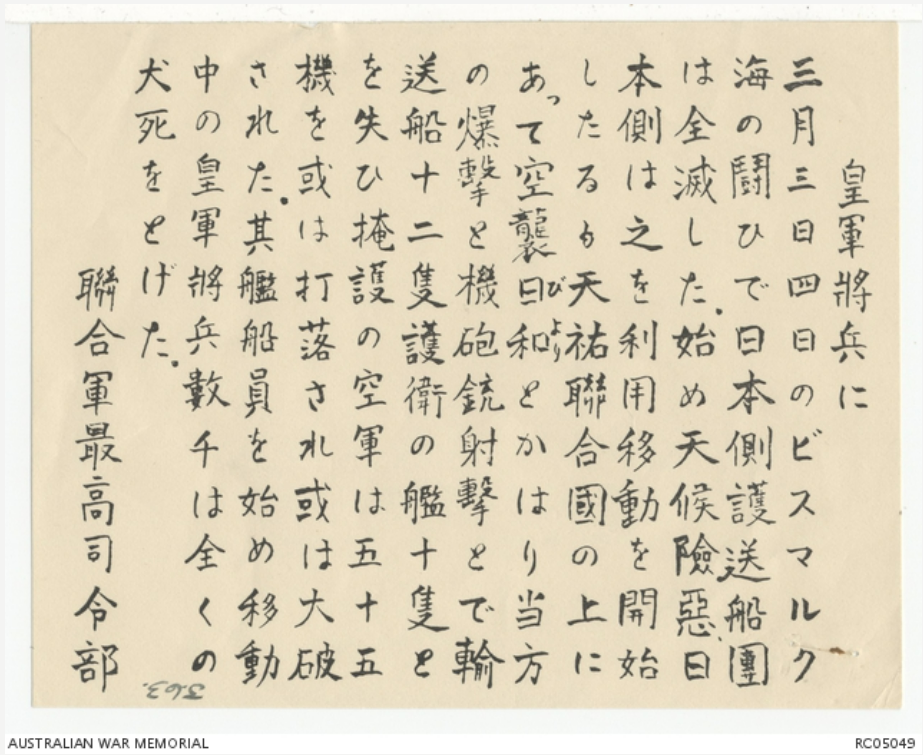 皇軍將兵に
三月三日四日のビスマルク
海の鬪ひで日本側護送船團
は全滅した。始め天候險惡、日
本側は之を利用移動を開始
したるも天祐聯合國の上に
あって空襲日和とかはり当方
び より
の爆擊と機砲銃射擊とで輸
送船十二隻護衛の艦十隻と
を失ひ掩護の空軍は五十五
機を或は打落され或は大破
された。其艦船員を始め移動
中の皇軍將兵數千は全くの
犬死をとげた。
聯合軍最高司令部
563.
AUSTRALIAN WAR MEMORIAL
RC05049